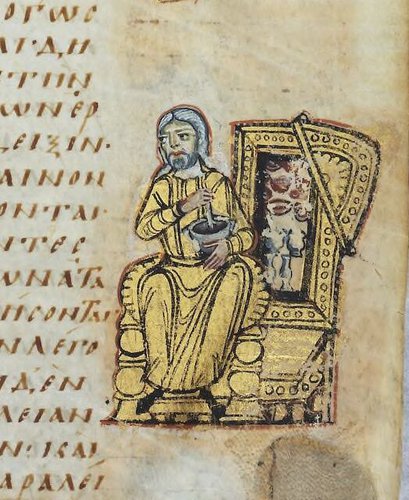 ΟΓΩC
ΑΙ·ΔΗ
ΝΤΗΝ
ΩΝ ΕΡ
ΔΕΙΞΙΝ·
ΑΙΝΟΝ
ΟΝΤΑΙ·
ΝΤΕC
ΩΝΑΤΑ
ΗCΟΝΤΑΙ
ΝΛΕΓΟ
ΙΔΕΝ
ΛΕΙΑΝ
Ν· ΚΑΙ
ΑΡΑΛΕΙ